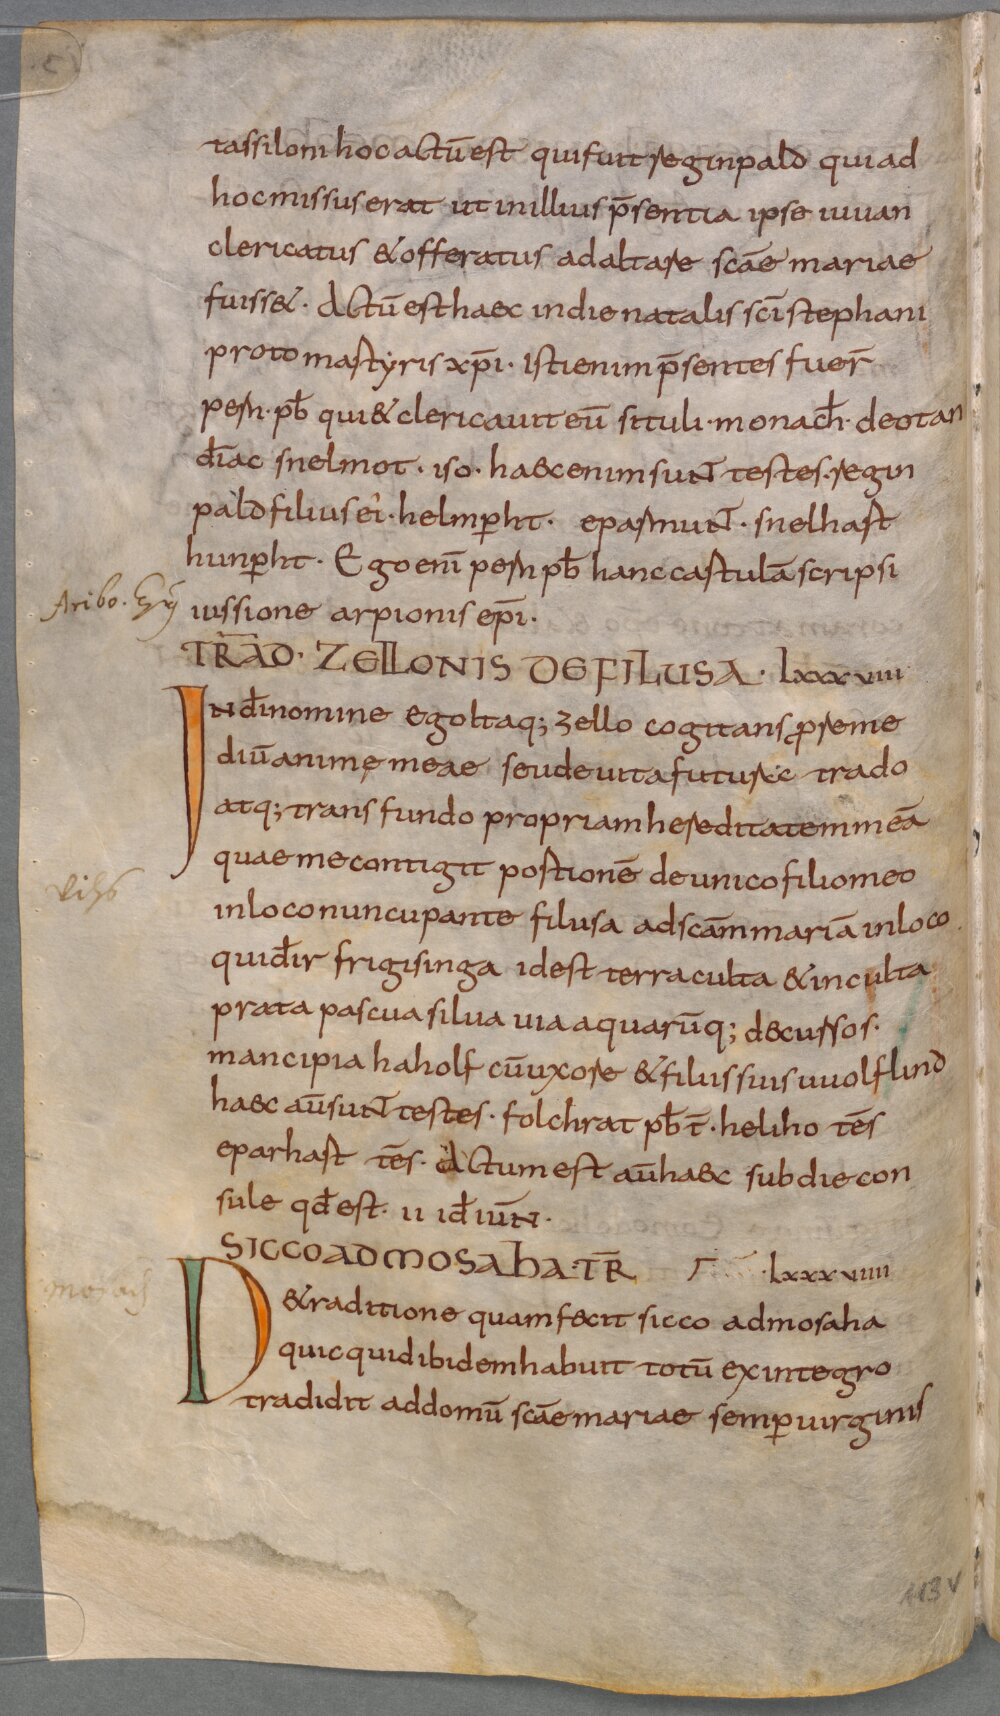 tassiloni hoc actū est qui fuit reginpald qui ad
hoc missus erat ut in illius p̄sentia ipse iuuan
clericatus & offeratus ad altare scāe mariae
fuiss&. Actū est haec in die natalis scī stephani
proto martyris xp̄i. Isti enim p̄sentes fuer̄
pern. pb̄ qui & clericauit eū situli. monach̄. deotan
diāc snelmot. iso. haec enim sunt testes. regin
pald filius ei. helmꝑht. eparmunt. snelhart
hunꝑht. Ego enī pern pb̄ hanc cartulā scripsi
Aribo. Ep̄
iussione arpionis ep̄i.
TRAD̄. ZELLONIS DE FILUSA. lxxxviii
IN dī nomine ego itaq; zello cogitans ꝓ reme
diū animę meae seu de uita futurae trado
atq; transfundo propriam hereditatem meā
quae me contigit portionē de unico filio meo
in loco nuncupante filusa ad scām mariā in loco
Vihs
qui dr̄ frigisinga id est terra culta & inculta
prata pascua silua uia aquarūq; decussos.
mancipia haholf cū uxore & filiis suis uuolflind
haec aū sunt testes. folchrat pb̄ t̄. heliho tēs
eparhart tēs. Actum est aū haec sub die con
sule qd̄ est. ii id̄ iūn.
SICCO AD MOSAHA. TR̄ lxxxviiii
mosach
D& raditione quam fecit sicco ad mosaha
quicquid ibidem habuit totū ex integro
tradidit ad domū scāe mariae semꝑ uirginis
113 v